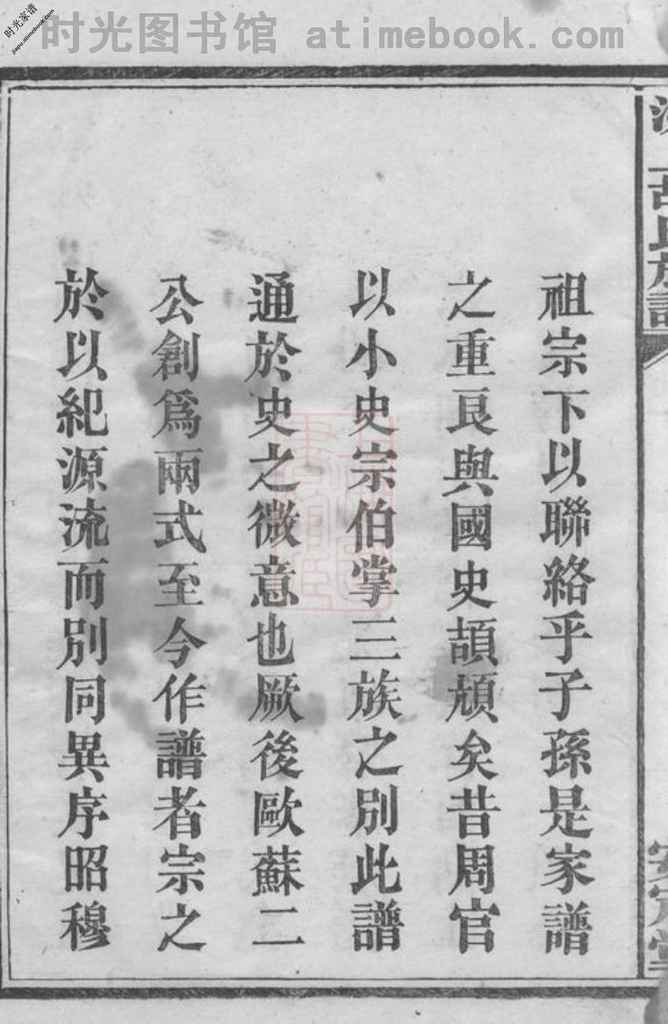 时光图书馆 atimebook.com
时光家谱
祖宗下以聯絡乎子孫是家譜
之重良與國史頡頏矣昔周官
以小史宗伯掌三族之別此譜
通於史之微意也厥後歐蘇二
公創爲兩式至今作譜者宗之
於以紀源流而別同異序昭穆
胡氏族譜